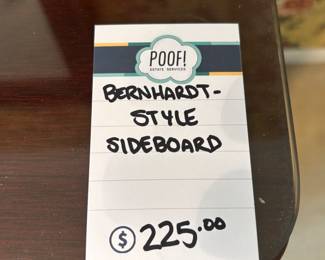 POOF!
ESTATE SERVICES
BERNHARDT-
STYLE
SIDEBOARD
$ 225.00